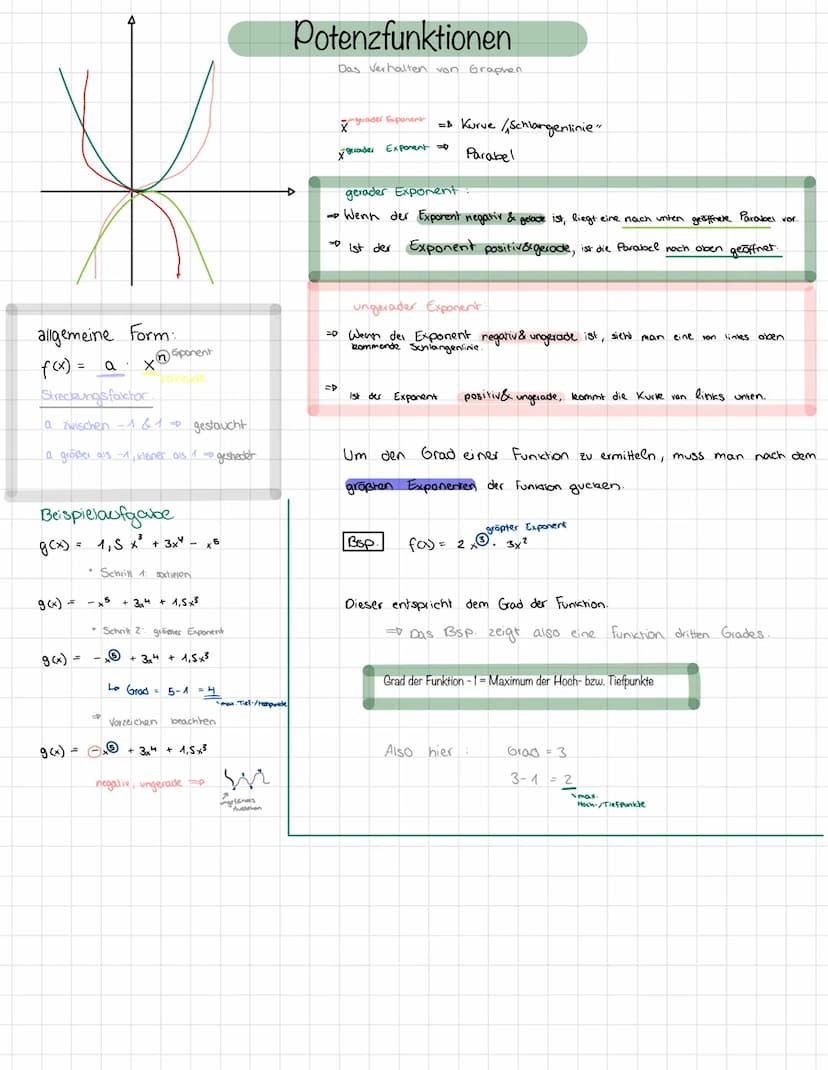 Potenzfunktionen
Das Verhalten von Graphen
x ungerader Exponent => Kurve / "Schlangenlinie"
x gerader Exponent => Parabel
gerader Exponent:
=> Wenn der Exponent negativ & gerade ist, liegt eine nach unten geöffnete Parabel vor.
=> Ist der Exponent positiv & gerade, ist die Parabel nach oben geöffnet.
ungerader Exponent:
=> Wenn der Exponent negativ & ungerade ist, sieht man eine von links oben
kommende Schlangenlinie.
=> Ist der Exponent positiv & ungerade, kommt die Kurve von links unten.
allgemeine Form:
f(x) = a · x^n Exponent
Streckungsfaktor
a zwischen -1 & 1 => gestaucht
a größer als -1, kleiner als 1 => gestreckt
Um den Grad einer Funktion zu ermitteln, muss man nach dem
größten Exponenten der Funktion gucken.
Bsp. f(x) = 2x^3 · 3x^2
größter Exponent
Dieser entspricht dem Grad der Funktion.
=> Das Bsp. zeigt also eine Funktion dritten Grades.
Grad der Funktion - 1 = Maximum der Hoch- bzw. Tiefpunkte
Also hier: Grad = 3
3-1 = 2
max.
Hoch-/Tiefpunkte
Beispielaufgabe
g(x) = 1,5x^3 + 3x^4 - x^5
• Schritt 1: sortieren
g(x) = -x^5 + 3x^4 + 1,5x^3
• Schritt 2: größter Exponent
g(x) = -x^5 + 3x^4 + 1,5x^3
↳ Grad = 5-1 = 4
max. Tief-/Hochpunkte
=> Vorzeichen beachten
g(x) = -x^5 + 3x^4 + 1,5x^3
negativ, ungerade =>
Aussehen